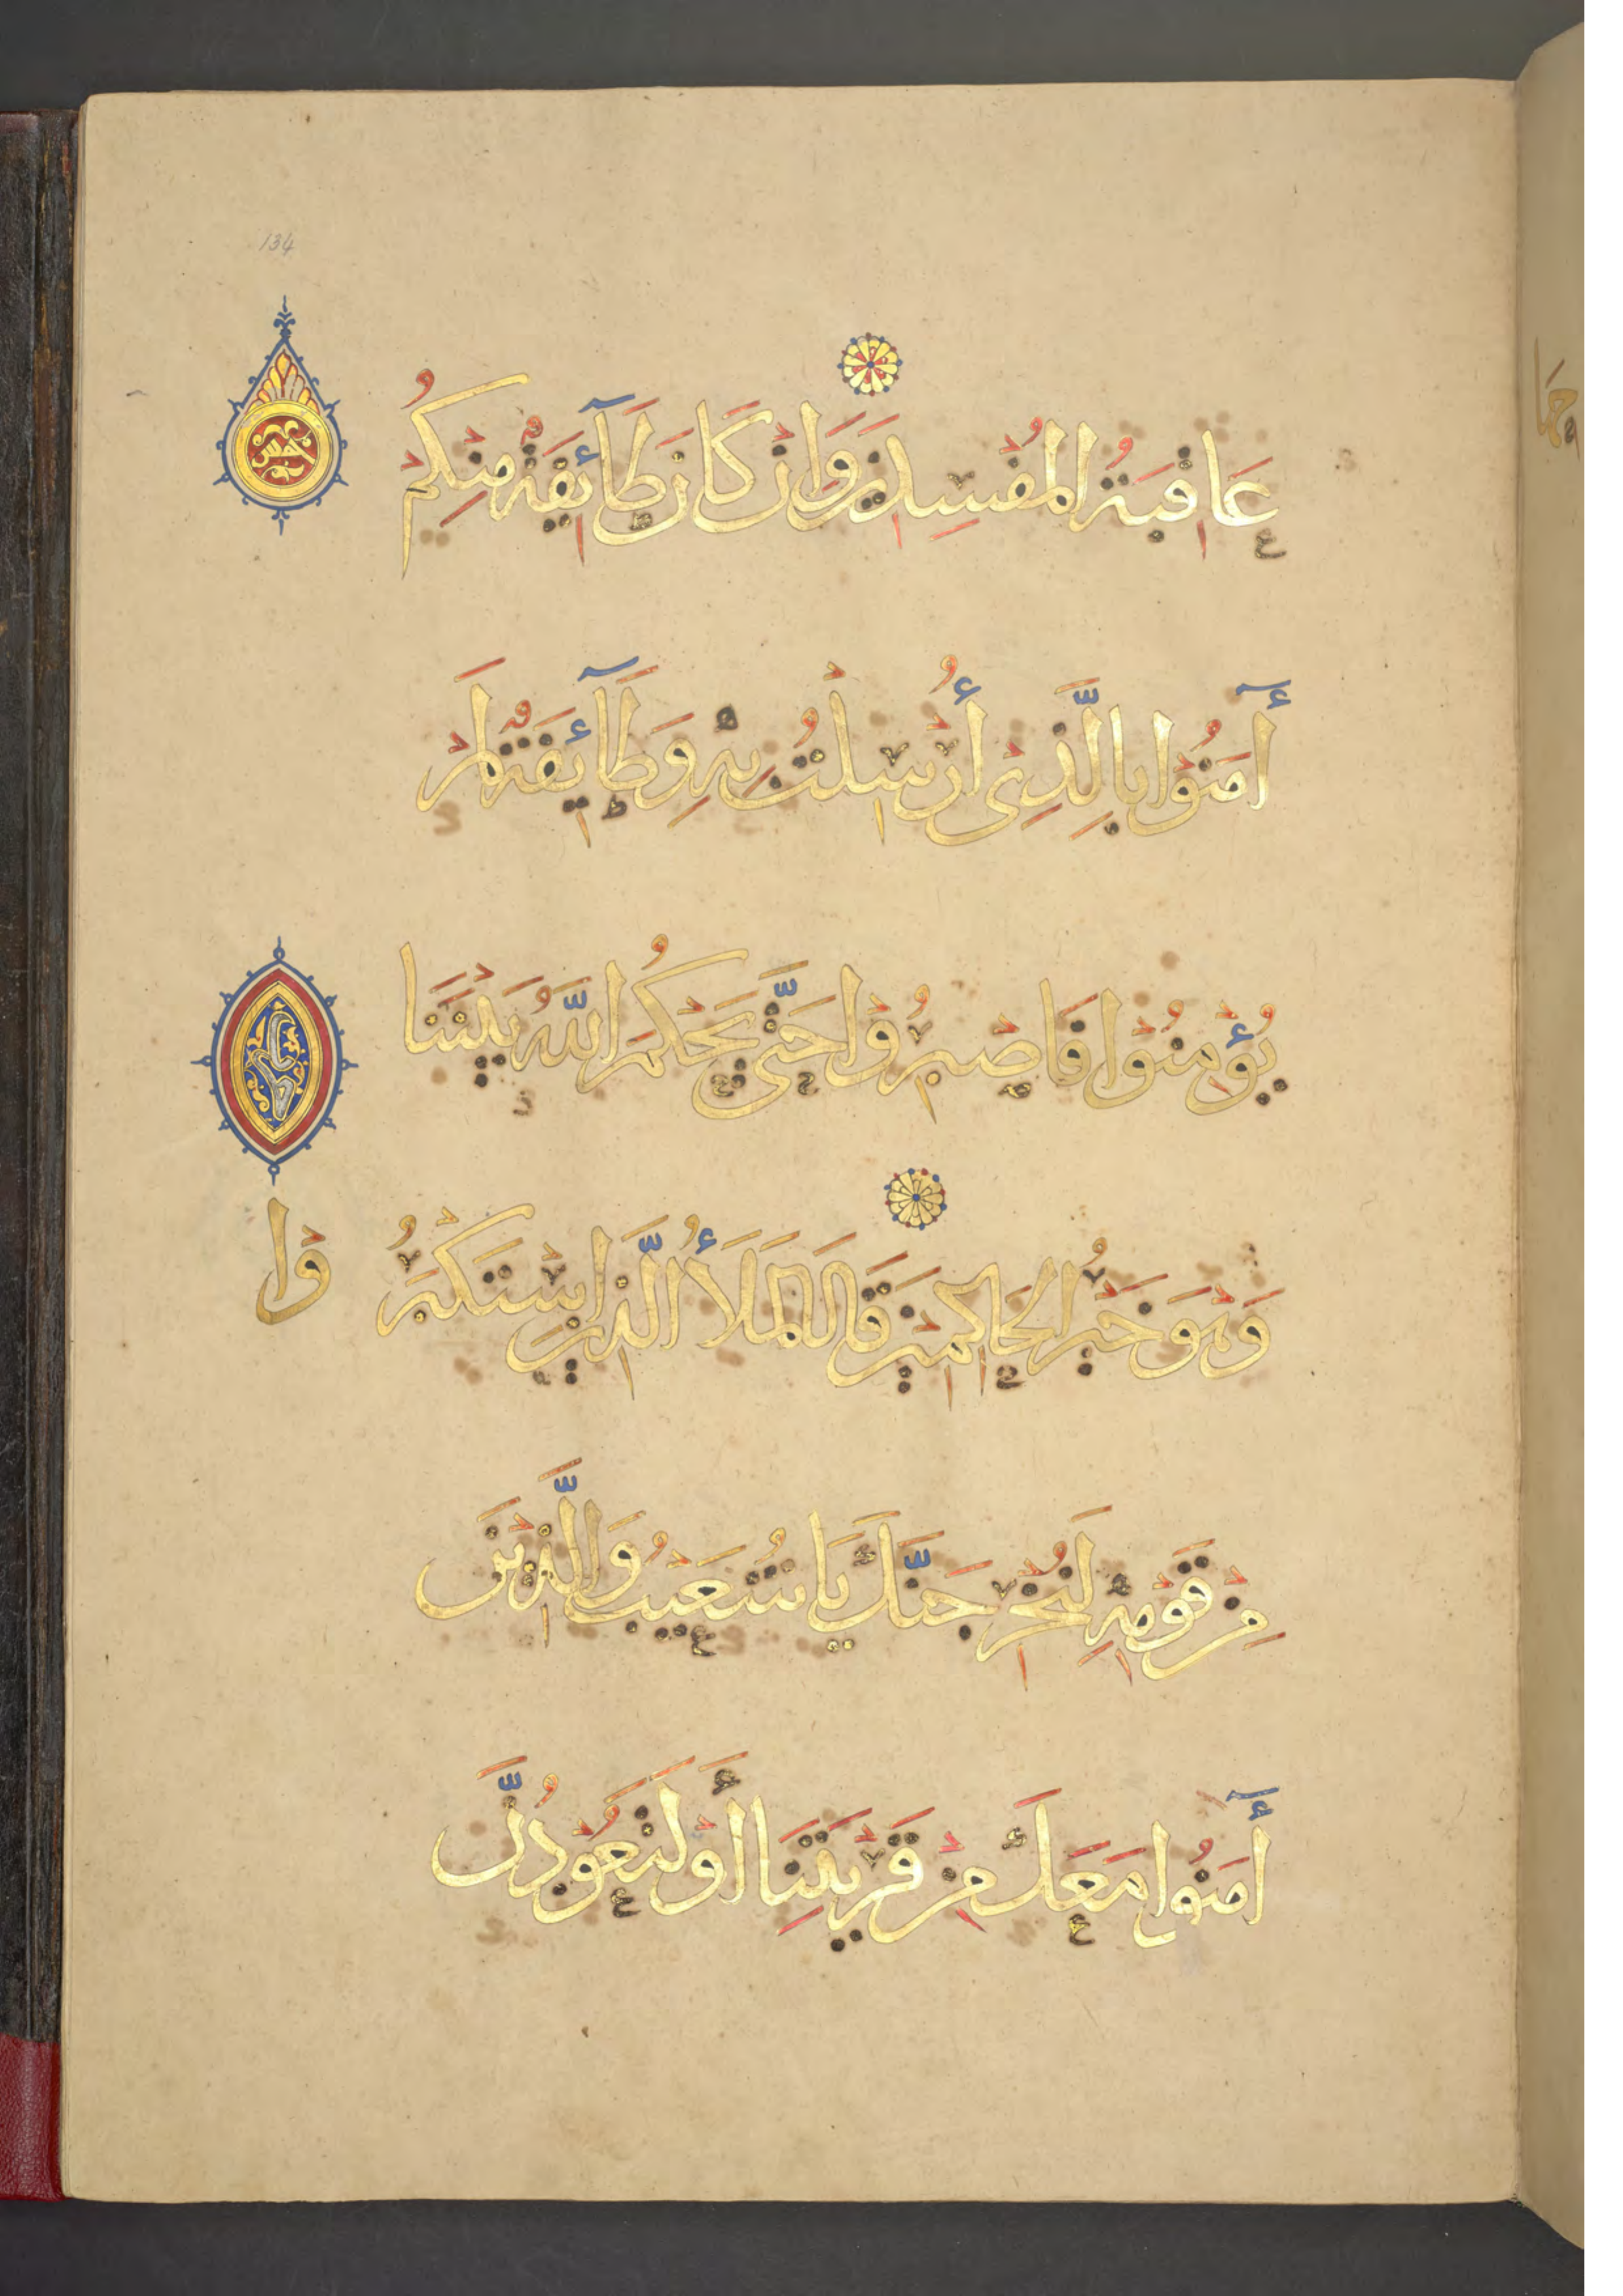 134
عَاقِبَةُ الْمُفْسِدِينَ وَإِنْ كَانَ طَآئِفَةٌ مِنْكُمْ
خمس
أٓمَنُوْا بِالَّذِىْ أُرْسِلْتُ بِهِ وَطَآئِفَةٌ لَمْ
يُؤْمِنُوْا فَاصْبِرُوْا حَتَّى يَحْكُمَ اللّٰهُ بَيْنَنَا
وَهْوَ خَيْرُ الْحَاكِمِيْنَ قَالَ الْمَلَأُ الَّذِيْنَ اسْتَكْبَرُوْا
مِنْ قَوْمِهِ لَنُخْرِجَنَّكَ يَا شُعَيْبُ وَالَّذِيْنَ
أٓمَنُوْا مَعَكَ مِنْ قَرْيَتِنَا أَوْ لَتَعُوْدُنَّ